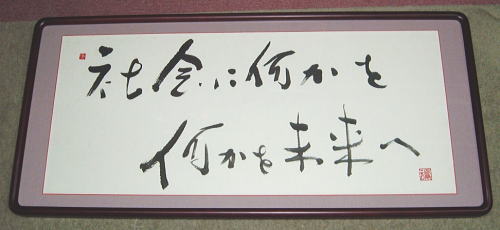 社会に何かを
何かを未来へ